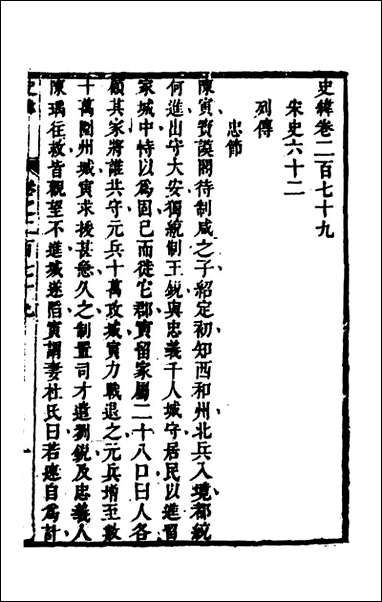 史緯卷二百七十九
宋史六十二
列傳
忠節
陳寅寶謨閣待制咸之子紹定初知西和州北兵入境郡統
何進出守大安獨統制王銳與忠義千人城守居民以進留
家城中恃以爲固已而徙它郡寅留家屬二十八口曰人各
顧其家將誰共守元兵十萬攻城寅力戰退之元兵增至數
十萬圍州城寅求援甚急久之制置司才遣劉銳及忠義人
陳瑀往救皆觀望不進城遂陷寅謂妻杜氏曰若速自爲計